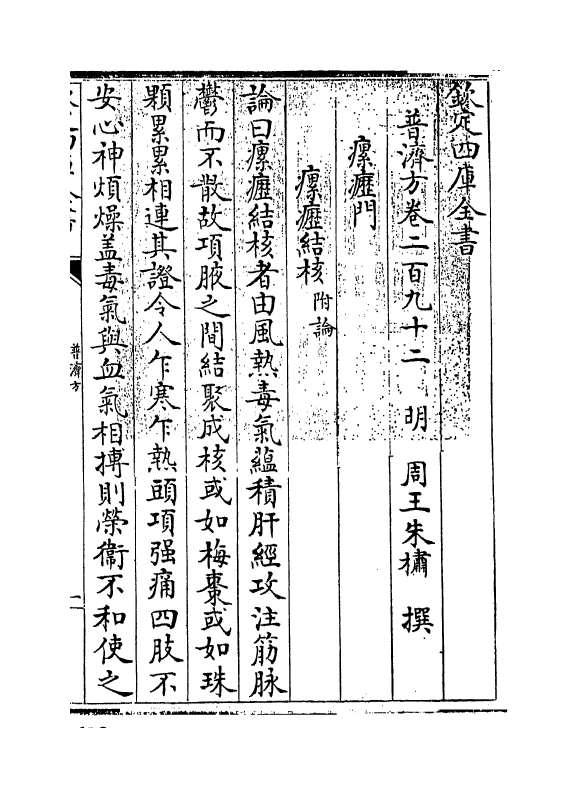 欽定四庫全書
普濟方卷二百九十二　明　周王朱橚　撰
瘰癧門
瘰癧結核附論
論曰瘰癧結核者由風熱毒氣蘊積肝經攻注筋脉
鬱而不散故項腋之間結聚成核或如梅棗或如珠
顆累累相連其證令人乍寒乍熱頭項强痛四肢不
安心神煩燥盖毒氣與血氣相搏則榮衛不和使之
普濟方